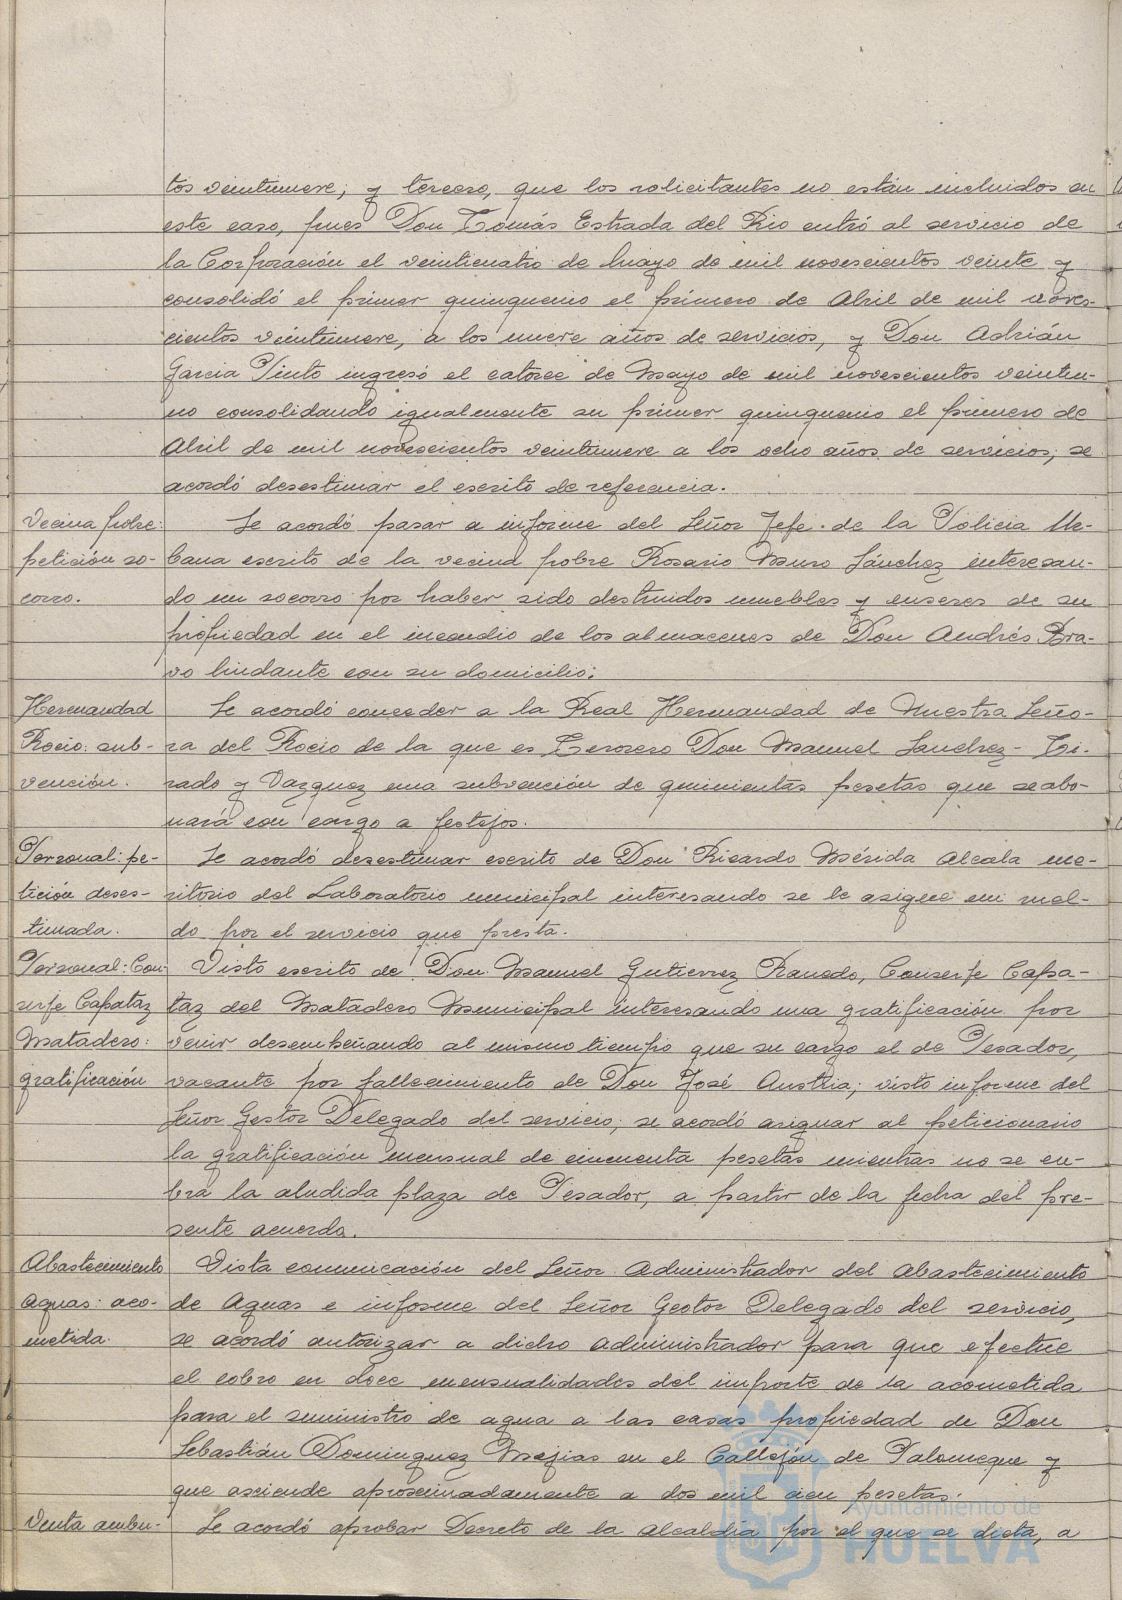 tos veintinueve; y tercero, que los solicitantes no están incluidos en
este caso, pues Don Tomás Estrada del Rio entró al servicio de
la Corporación el veinticuatro de Mayo de mil novescientos veinte y
consolidó el primer quinquenio el primero de Abril de mil noves-
cientos veintinueve, a los nueve años de servicios, y Don Adrián
Garcia Pinto ingresó el catorce de Mayo de mil novescientos veintiu-
no consolidando igualmente su primer quinquenio el primero de
Abril de mil novescientos veintinueve a los ocho años de servicios; se
acordó desestimar el escrito de referencia.
Vecina pobre:
petición so-
corro.
Se acordó pasar a informe del Señor Jefe de la Policia Ur-
bana escrito de la vecina pobre Rosario Muro Sánchez interesan-
do un socorro por haber sido destruidos muebles y enseres de su
propiedad en el incendio de los almacenes de Don Andrés Bra-
vo lindante con su domicilio;
Hermandad
Rocio: sub-
vención.
Se acordó conceder a la Real Hermandad de Nuestra Seño-
ra del Rocio de la que es Tesorero Don Manuel Sanchez-Ti-
rado y Vazquez una subvención de quinientas pesetas que se abo-
nará con cargo a festejos.
Personal: pe-
tición deses-
timada.
Se acordó desestimar escrito de Don Ricardo Mérida Alcala me-
ritorio del Laboratorio municipal interesando se le asigne un suel-
do por el servicio que presta.
Personal: Con-
serje Capataz
Matadero:
gratificación
Visto escrito de Don Manuel Gutierrez Ranedo, Conserje Capa-
taz del Matadero Municipal interesando una gratificación por
venir desempeñando al mismo tiempo que su cargo el de Pesador,
vacante por fallecimiento de Don José Austria; visto informe del
Señor Gestor Delegado del servicio; se acordó asignar al peticionario
la gratificación mensual de cincuenta pesetas mientras no se cu-
bra la aludida plaza de Pesador, a partir de la fecha del pre-
sente acuerdo.
Abastecimiento
aguas: aco-
metida.
Vista comunicación del Señor Administrador del Abastecimiento
de Aguas e informe del Señor Gestor Delegado del servicio,
se acordó autorizar a dicho Administrador para que efectue
el cobro en doce mensualidades del importe de la acometida
para el suministro de agua a las casas propiedad de Don
Sebastián Dominguez Mejias en el Callejón de Palomeque y
que asciende aproximadamente a dos mil cien pesetas.
Venta ambu-
Se acordó aprobar Decreto de la Alcaldía por el que se dicta, a
Ayuntamiento de
HUELVA